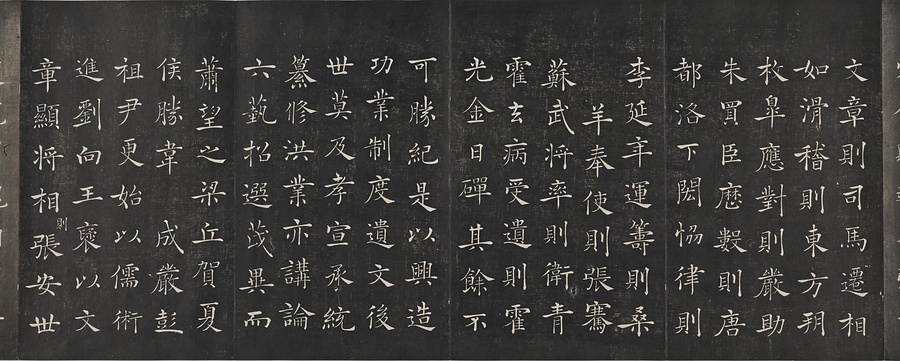 文章則司馬遷相
如滑稽則東方朔
枚皋應對則嚴助
朱買臣曆數則唐
都洛下閎恊律則
李延年運籌則桑
羊奉使則張騫
蘇武將率則衛青
霍去病受遺則霍
光金日磾其餘不
可勝紀是以興造
功業制度遺文後
世莫及孝宣承統
纂修洪業亦講論
六藝招選茂異而
蕭望之梁丘賀夏
侯勝韋 成嚴彭
祖尹更始以儒術
進劉向王襃以文
章顯將相則張安世